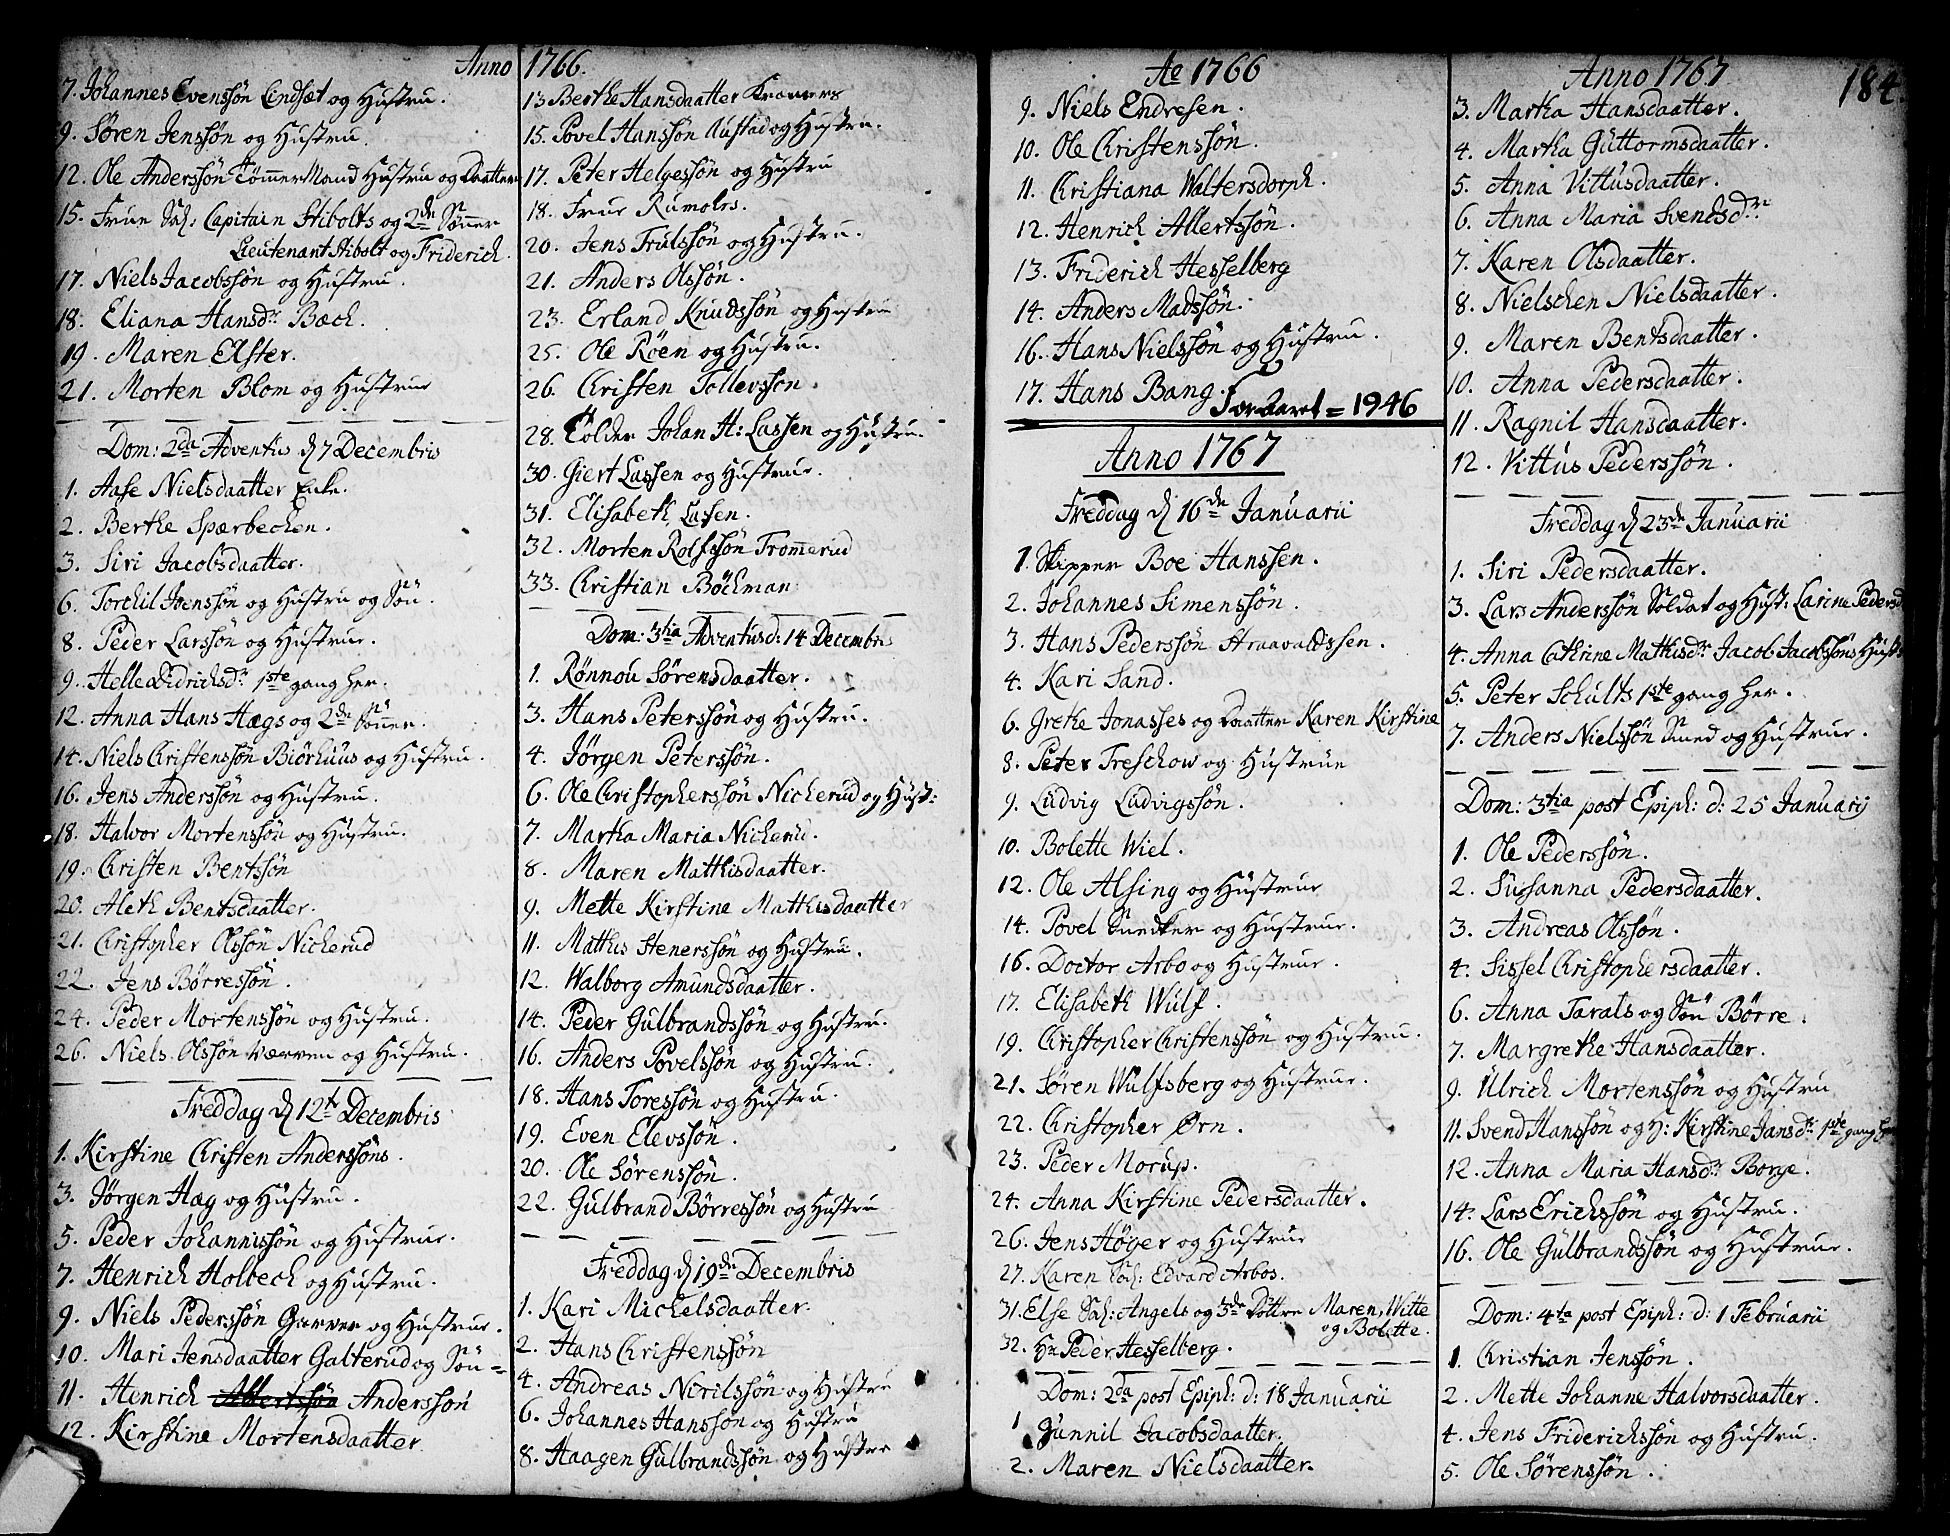 Anno 1766.
7. Johannes Evenssön Lindsæt og Hustru.
9. Sören Jenssön og Hustru.
12. Ole Anderssön Tömmer Mand Hustru og Daatter
15. Frue Sal: Capitain Stibolts og 2de Sönner
Lieutenant Stibolt og Friderich.
17. Niels Jacobssön og Hustru.
18. Eliana Hansdr Bæch.
19. Maren Elster.
21. Morten Blom og Hustrue
Dom: 2da Adventus d 7 Decembris
1. Aase Nielsdaatter Enke.
2. Berthe Spærbechen.
3. Siri Jacobsdaatter.
6. Torchil Joenssön og Hustru og Sön.
8. Peder Larssön og Hustrue.
9. Helle Didrichsdr 1ste gang her.
12. Anna Hans Hægs og 2de Sönner.
14. Niels Christenssön Biörhuus og Hustru.
16. Jens Anderssön og Hustru.
18. Halvor Mortenssön og Hustru.
19. Christen Bentssön
20. Aleth Bentsdaatter.
21. Christopher Olssön Nicherud
22. Jens Börressön.
24. Peder Mortenssön og Hustru.
26. Niels Olssön Værven og Hustru.
Freddag d 12te Decembris
1. Kirstine Christen Anderssöns.
3. Jörgen Hæg og Hustru.
5. Peder Johannissön og Hustrue.
7. Henrich Holbech og Hustru.
9. Niels Pederssön Garver og Hustrue.
10. Mari Jensdaatter Galterud og Sön
11. Henrich Albertssön Anderssön
12. Kirstine Mortensdaatter
13 Berthe Hansdaatter Kræmers
15. Povel Hanssön Rustad og Hustru.
17. Peter Helgessön og Hustru
18. Frue Rumohrs.
20. Jens Trulssön og Hustru.
21. Anders Olssön.
23. Erland Knudssön og Hustru
25. Ole Röen og Hustru.
26. Christen Tollevssön.
28. Tolder Johan H: Lassen og Hustru.
30. Giert Lassen og Hustrue.
31. Elisabeth Lassen.
32. Morten Rolfssön Frommerud
33. Christian Böchman
Dom: 3tia Adventus d: 14 Decembris
1. Rönnou Sörensdaatter.
3. Hans Peterssön og Hustru.
4. Jörgen Peterssön.
6. Ole Christopherssön Nicherud og Hust:
7. Martha Maria Nicherud.
8. Maren Matthisdaatter.
9. Mette Kirstine Matthisdaatter
11. Matthis Stenerssön og Hustru.
12. Walborg Amundsdaatter.
14. Peder Gulbrandssön og Hustru.
16. Anders Povelssön og Hustru.
18. Hans Toressön og Hustru.
19. Even Elevssön.
20. Ole Sörenssön.
22. Gulbrand Börressön og Hustru
Freddag d 19de Decembris
1. Kari Michelsdaatter.
2. Hans Christenssön
4. Andreas Nirilssön og Hustru
6. Johannes Hanssön og Hustru
8. Haagen Gulbrandssön og Hustru
Ao 1766
9. Niels Endresen.
10. Ole Christenssön.
11. Christiana Waltersdorph.
12. Henrich Albertssön.
13. Friderich Hesselberg
14. Anders Madssön.
16. Hans Nielssön og Hustru.
17. Hans Bang.
For Aaret = 1946
Anno 1767
Freddag d 16de Januarii
1. Skipper Boe Hanssen.
2. Johannes Simenssön.
3. Hans Pederssön Straavaldssen.
4. Kari Sand.
6. Grethe Jonasses og Daatter Karen Kirstine
8. Peter Treschow og Hustrue
9. Ludvig Ludvigssön.
10. Bolette Wiel.
12. Ole Alsing og Hustrue
14. Povel Snedker og Hustrue.
16. Doctor Arbo og Hustrue.
17. Elisabeth Wulf.
19. Christopher Christenssön og Hustru.
21. Sören Wulfsberg og Hustrue.
22. Christopher Ørn.
23. Peder Morup.
24. Anna Kirstine Pedersdaatter.
26. Jens Höger og Hustrue
27. Karen Sal: Edvard Arbos.
31. Else Sal: Angels og 3de Döttre Maren, Witte
og Bolette.
32. Hr Peder Hesselberg.
Dom: 2da post Epiph: d: 18 Januarii
1 Gunnil Jacobsdaatter.
2. Maren Nielsdaatter.
Anno 1767
184.
3. Martha Hansdaatter.
4. Martha Guttormsdaatter.
5. Anna Vittusdaatter.
6. Anna Maria Svendsdr
7. Karen Olsdaatter.
8. Nielschen Nielsdaatter.
9. Maren Bentsdaatter.
10. Anna Pedersdaatter.
11. Ragnil Hansdaatter.
12. Vittus Pederssön.
Freddag d 23de Januarii
1. Siri Pedersdaatter.
3. Lars Anderssön Soldat og Hust: Larine Pedersd
4. Anna Cathrine Mathisdr Jacob Jacobssöns Hust
5. Peter Schults 1ste gang her.
7. Anders Nielssön Smed og Hustrue.
Dom: 3tia post Epiph: d: 25 Januarij
1. Ole Pederssön.
2. Susanna Pedersdaatter.
3. Andreas Olssön.
4. Sissel Christophersdaatter.
6. Anna Tarals og Sön Börre.
7. Margrethe Hansdaatter.
9. Ulrich Mortenssön og Hustru
11. Svend Hanssön og H: Kirstine Jansdr 1ste gang her
12. Anna Maria Hansdr Borge.
14. Lars Erichssön og Hustru.
16. Ole Gulbrandssön og Hustrue.
Dom: 4ta post Epiph: d: 1 Februarii
1. Christian Jenssön.
2. Mette Johanne Halvorsdaatter.
4. Jens Friderichssön og Hustru.
5. Ole Sörenssön.